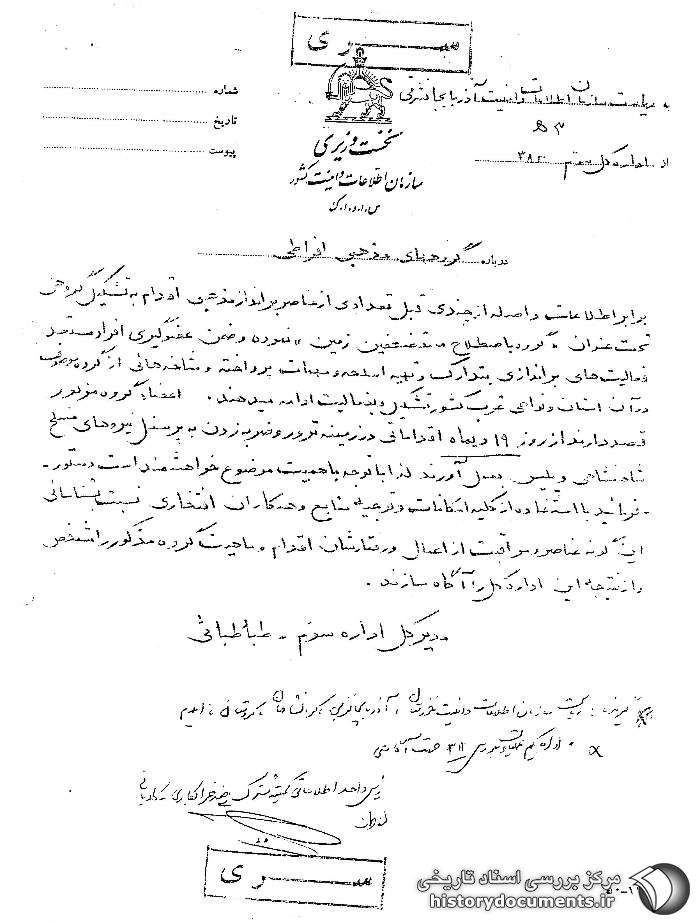 سری
به ریاست سازمان اطلاعات و امنیت آذربایجانشرقی
شماره
تاریخ
از اداره کل سوم ۳۸۲
پیوست
نخست وزیری
سازمان اطلاعات و امنیت کشور
س.ا.و.ا.ک
درباره گروههای مذهبی افراطی
برابر اطلاعات واصله از چندی قبل تعدادی از عناصر برانداز مذهبی اقدام به تشکیل گروهی
تحت عنوان «گروه باصطلاح مستضعفین زمین» نموده و ضمن عضوگیری افراد مستعد
فعالیت‌های براندازی بتدارک و تهیه اسلحه و مهمات پرداخته و شاخه‌هائی از گروه موصوف
در آن استان و نواحی غرب کشور تشکیل و بفعالیت ادامه میدهند. اعضاء گروه مزبور
قصد دارند از روز ۱۹ دیماه اقداماتی در زمینه ترور و ضربه زدن به پرسنل نیروهای مسلح
شاهنشاهی و پلیس بعمل آورند لذا با توجه باهمیت موضوع خواهشمند است دستور
فرمائید با استفاده از کلیه امکانات و توجیه منابع و همکاران افتخاری نسبت بشناسائی
این گونه عناصر و مراقبت از اعمال و رفتارشان اقدام و ماهیت گروه مذکور را مشخص
و از نتیجه این اداره کل را آگاه سازند.
مدیر کل اداره سوم - طباطبائی
گیرنده: ریاست سازمان اطلاعات و امنیت خوزستان، آذربایجانغربی، کرمانشاهان، کردستان، ایلام
اداره کل ۳۱۱ جهت آگاهی
رئیس واحد اطلاعاتی کمیته مشترک ضد خرابکاری
سری
مرکز بررسی اسناد تاریخی
historydocuments.ir